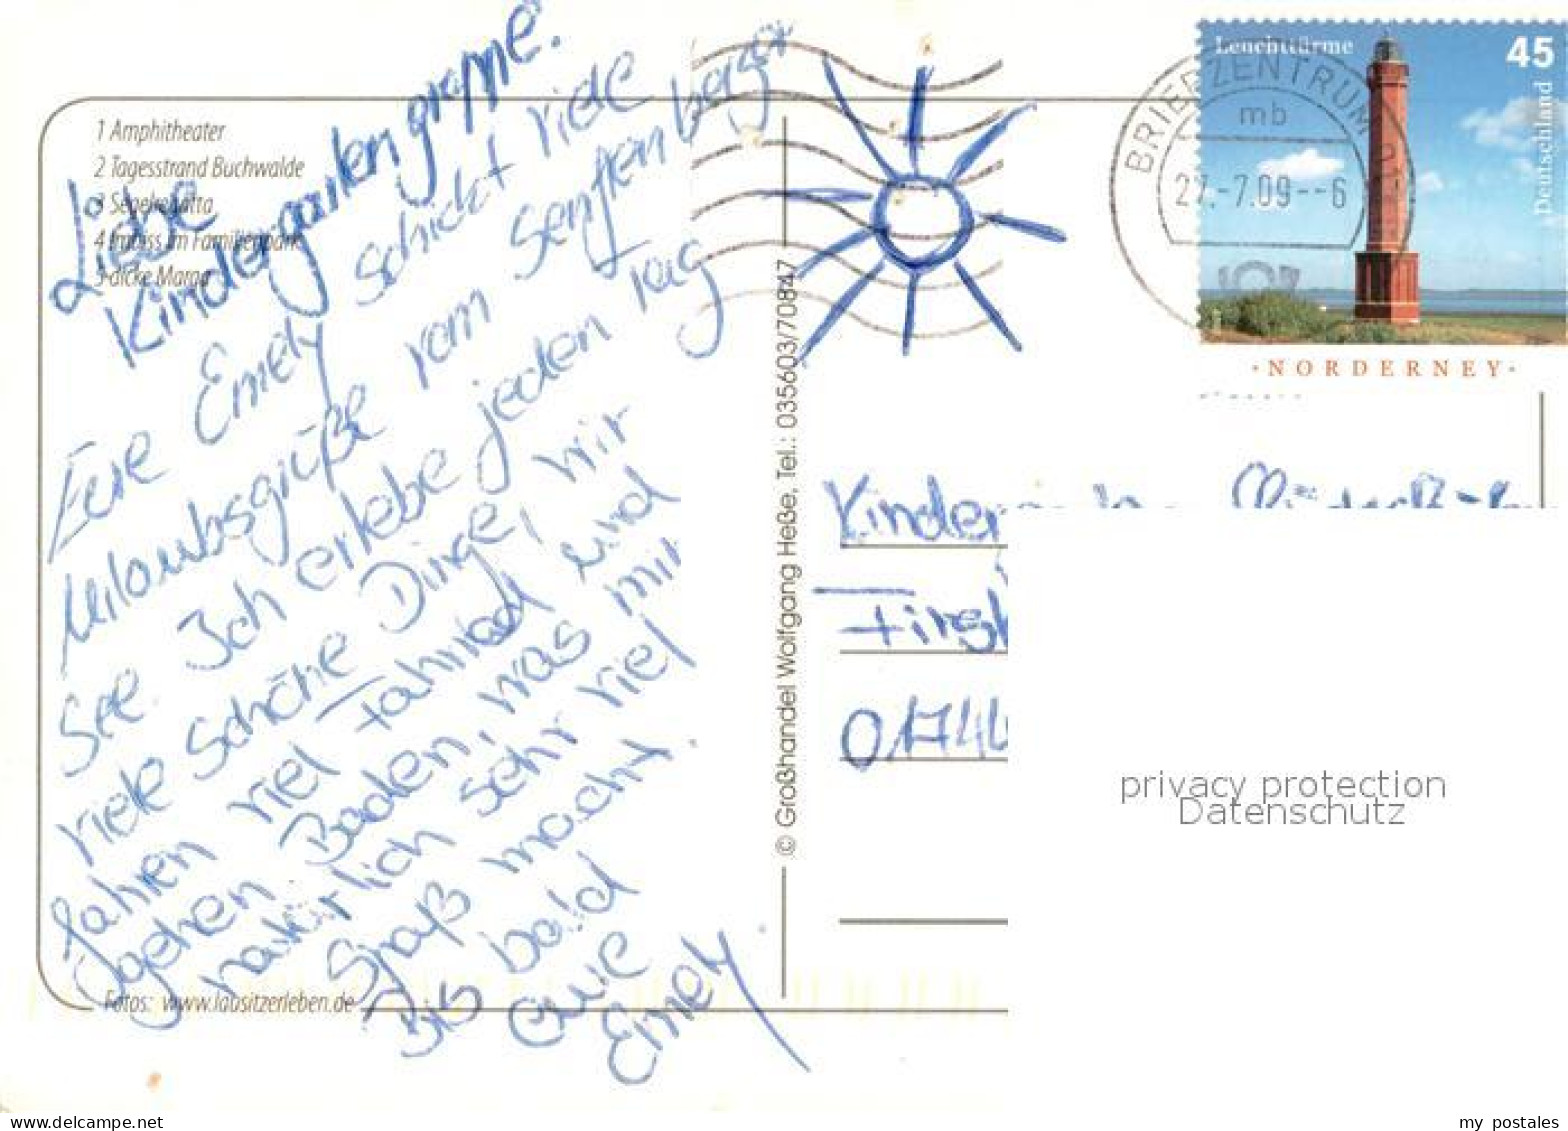 1 Amphitheater
2 Tagesstrand Buchwalde
3 Segelregatta
4 Imbiss im Familienpark
5 dicke Marga
Liebe
Kindergartengruppe.
Eure Emely schickt viele
Urlaubsgrüße vom Senftenberger
See. Ich erlebe jeden Tag
viele schöne Dinge, wir
fahren viel Fahrrad und
gehen Baden, was mir
natürlich sehr viel
Spaß macht.
Bis bald
eure
Emely
Fotos: www.lausitzerleben.de
© Großhandel Wolfgang Heße, Tel.: 035603/70847
BRIEFZENTRUM
mb
27.-7.09--6
Leuchttürme
45
Deutschland
·NORDERNEY·
privacy protection
Datenschutz
delcampe.net
my_postales